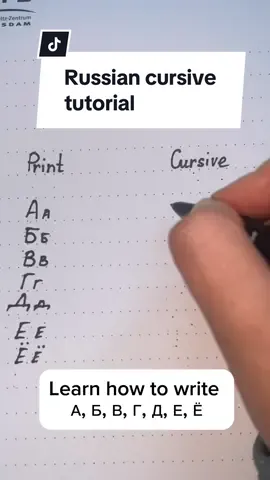 SDAM
Russian cursive
tutorial
Print Cursive
А а
Б б
В в
Г г
Д д
Е е
Ё ё
Learn how to write
А, Б, В, Г, Д, Е, Ё